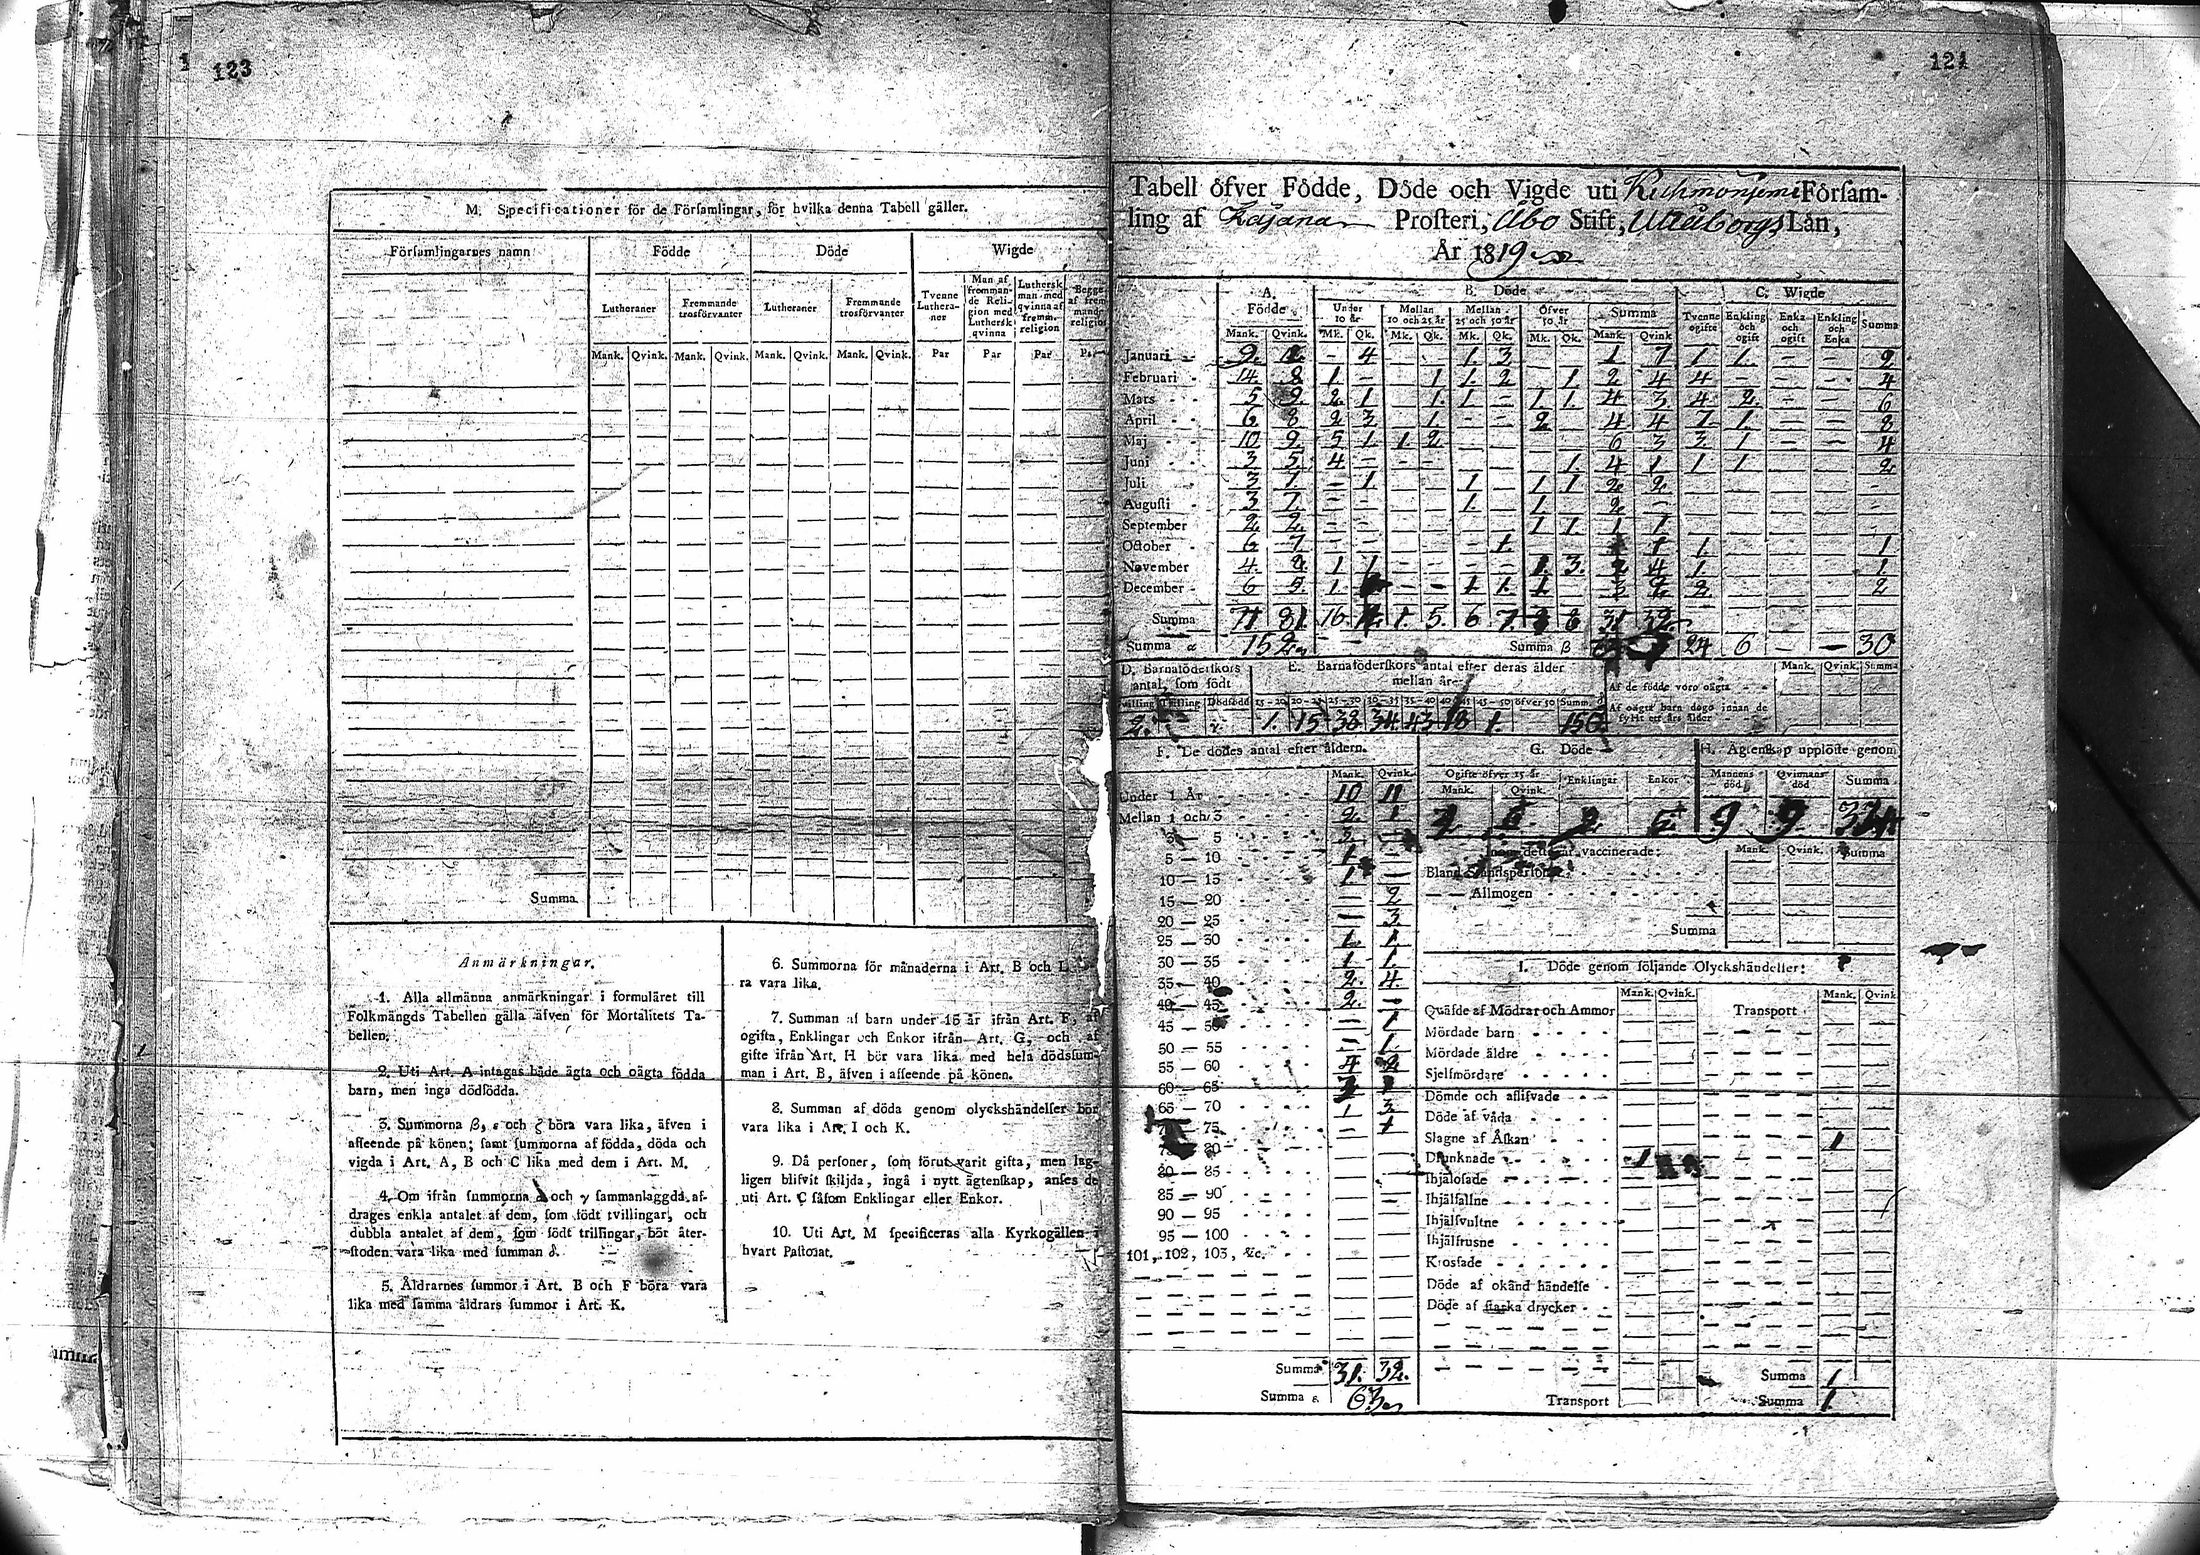 123
M. Specificationer för de Församlingar, för hvilka denna Tabell gäller.
Församlingarnes namn Födde Döde Wigde
Lutheraner Fremmande trosförvanter Lutheraner Fremmande trosförvanter Tvenne Lutheraner Man af frommande Religion med Luthersk qvinna Luthersk man med qvinna af fremm. religion
Mank. Qvink. Mank. Qvink. Mank. Qvink. Mank. Qvink. Par Par Par Par
Summa
Anmärkningar.
1. Alla allmänna anmärkningar i formuläret till
Folkmängds Tabellen gälla äfven för Mortalitets Ta-
bellen.
2. Uti Art. A intagas både ägta och oägta födda
barn, men inga dödfödda.
3. Summorna β, ε och ζ böra vara lika, äfven i
afseende på könen; samt summorna af födda, döda och
vigda i Art. A, B och C lika med dem i Art. M.
4. Om ifrån summorna α och γ sammanlaggda af-
drages enkla antalet af dem, som födt tvillingar, och
dubbla antalet af dem, som födt trillingar, bör åter-
stoden vara lika med summan δ.
5. Åldrarnes summor i Art. B och F böra vara
lika med samma åldrars summor i Art. K.
6. Summorna för månaderna i Art. B och L
ra vara lika.
7. Summan af barn under 15 år ifrån Art. F, af
ogifta, Enklingar och Enkor ifrån Art. G, och af
gifte ifrån Art. H bör vara lika med hela dödssum-
man i Art. B, äfven i afseende på könen.
8. Summan af döda genom olyckshändelser bör
vara lika i Art. I och K.
9. Då personer, som förut varit gifta, men lag-
ligen blifvit skiljda, ingå i nytt ägtenskap, anses de
uti Art. C såsom Enklingar eller Enkor.
10. Uti Art. M specificeras alla Kyrkogällen i
hvart Pastorat.
124
Tabell öfver Födde, Döde och Vigde uti Kuhmoniemi Församling af Kajana Prosteri, Åbo Stift, Uleåborgs Län,
År 1819
A. Födde B. Döde C. Wigde
Under 10 år Mellan 10 och 25 år Mellan 25 och 50 år Öfver 50 år Summa Tvenne ogifte Enkling och ogift Enka och ogift Enkling och Enka Summa
Mank. Qvink. Mk. Qk. Mk. Qk. Mk. Qk. Mk. Qk. Mank. Qvink
Januari 9 - 4 1 3 1 7 1 1 - - 2
Februari 14 8 1 - 1 1 2 1 2 4 4 - - - 4
Mars 5 9 2 1 1 1 - 1 1 4 3 4 2 - - 6
April 6 8 2 3 1 - - 2 4 4 7 1 - - 8
Maj 10 9 5 1 1 2 6 3 3 1 - - 4
Juni 3 5 4 - 1 4 1 1 1 2
Juli 3 7 - 1 1 1 1 2 2 -
Augusti 3 7 - - 1 1 2 - -
September 2 2 - - 1 1 1 1 -
October 6 7 - - 1 1 1 1
November 4 1 1 1 3 4 1 1
December 6 5 1 1 1 1 2 2
Summa 71 81 16 1 5 6 7 8 8 31 32
Summa α 152 Summa β 24 6 - - 30
D. Barnaföderskors antal, som födt
E. Barnaföderskors antal efter deras ålder mellan år
Mank. Qvink. Summa
Af de födde voro oägta
Af oägta barn dogo innan de fyllt ett års ålder
Dödfödd 15-20 20-25 25-30 30-35 35-40 40-45 45-50 öfver 50 Summ.
2. 1. 15 38 34 43 18 1. 150
F. De dödes antal efter åldern. G. Döde H. Ägtenskap upplöste genom
Mank. Qvink. Ogifte öfver 15 år Enklingar Enkor Mannens död Qvinnans död Summa
Mank. Qvink.
Under 1 År 10 11
Mellan 1 och 3 2 1
3 — 5 3 —
5 — 10 1 —
10 — 15 1 —
15 — 20 — 2
20 — 25 — 3
25 — 30 1 1
30 — 35 1 1
35 — 40 2 4
40 — 45 2 —
45 — 50 — 1
50 — 55 — 1
55 — 60 4 2
60 — 65
65 — 70 1 3
75 — 1
80 — 85
85 — 90
90 — 95
95 — 100
101, 102, 103, &c.
Summa 31. 32.
Summa ε. 63
9 9
vaccinerade: Mank. Qvink. Summa
Bland Ståndspersoner
— — Allmogen
Summa
I. Döde genom följande Olyckshändelser:
Mank. Qvink. Mank. Qvink
Quäfde af Mödrar och Ammor Transport
Mördade barn
Mördade äldre
Sjelfmördare
Dömde och aflifvade
Döde af våda
Slagne af Åskan 1
Drunknade 1
Ihjälosade
Ihjälfallne
Ihjälsvultne
Ihjälfrusne
Krossade
Döde af okänd händelse
Döde af starka drycker
Summa 1.
Transport Summa 1.